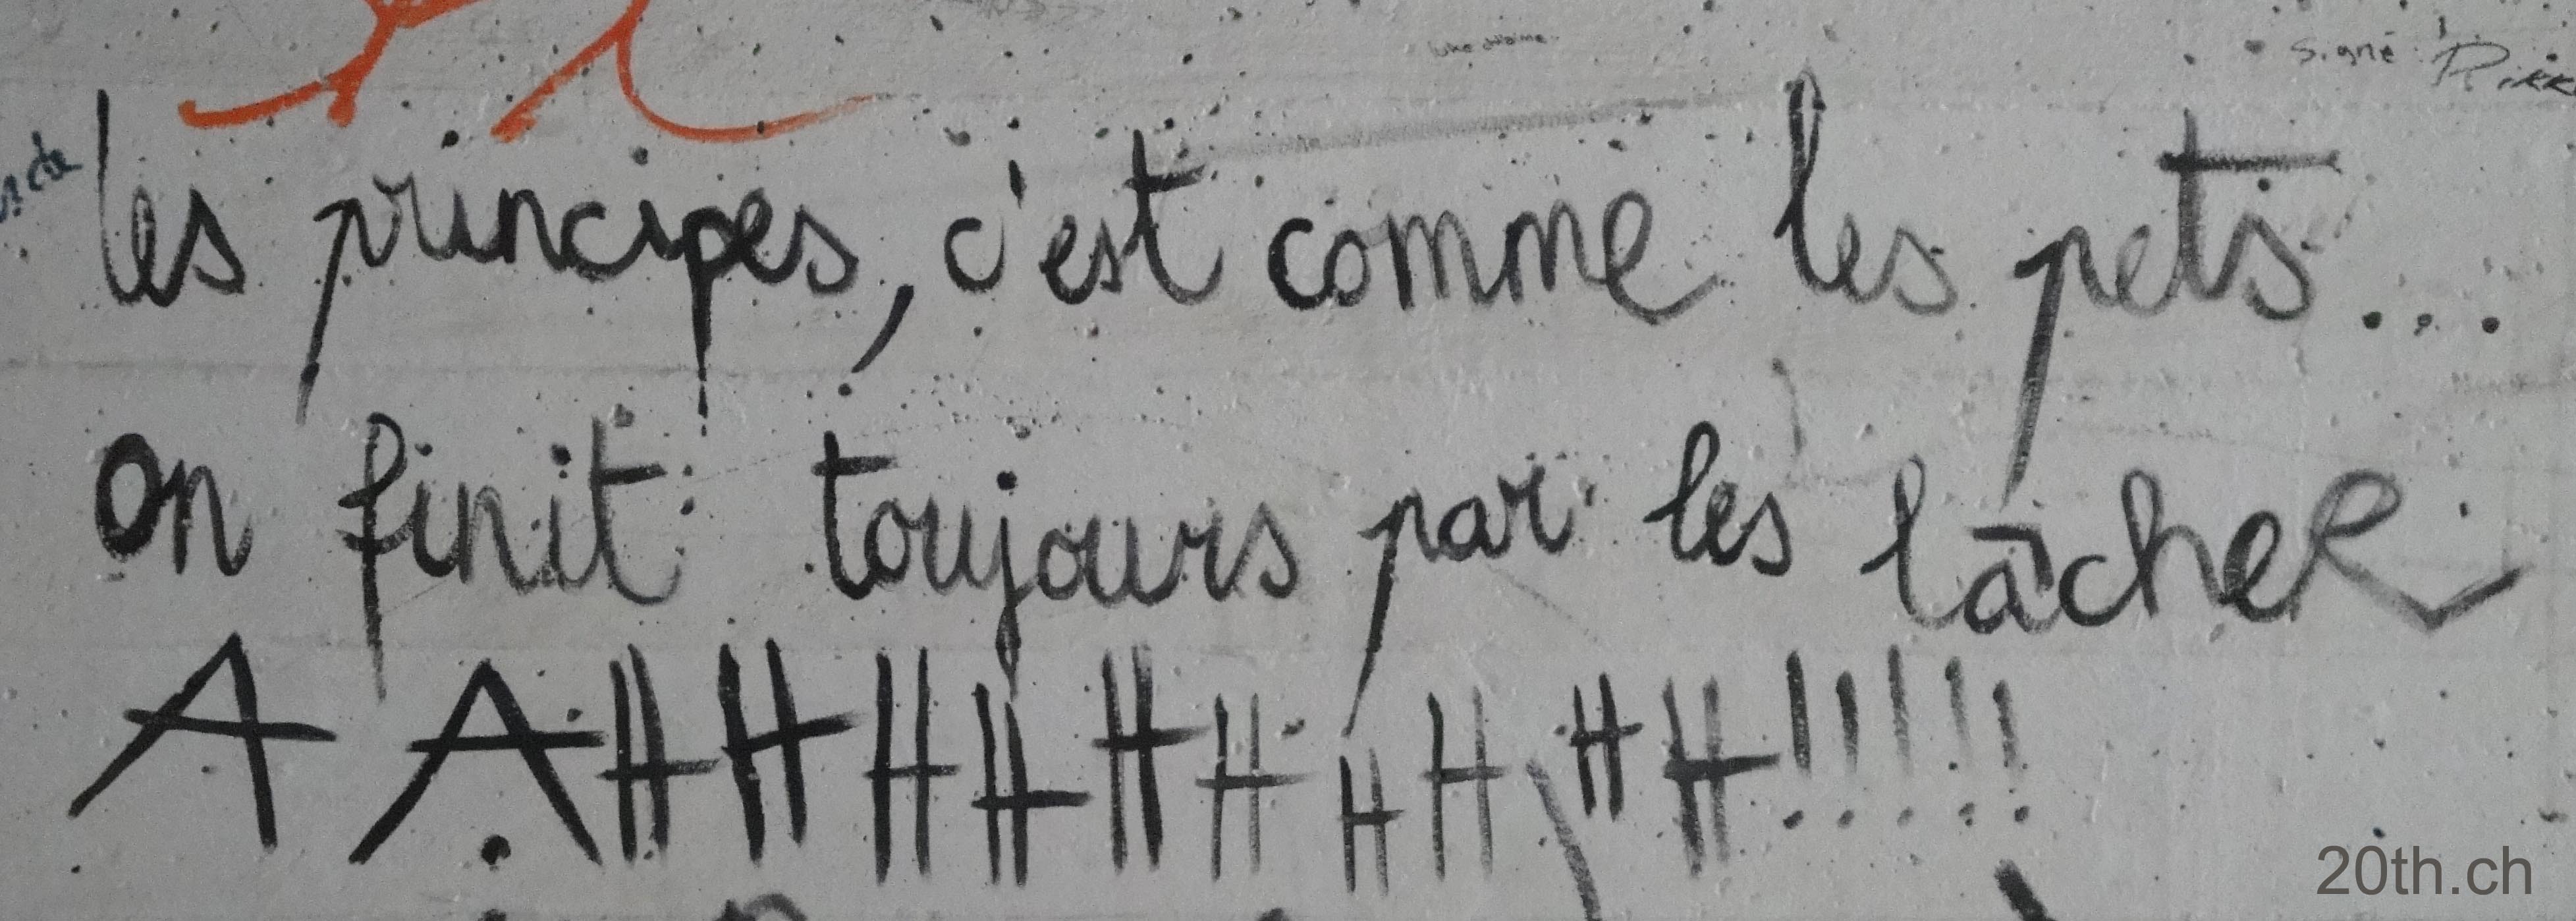 signé
les principes, c'est comme les pets...
on finit toujours par les lâcher
AAHHHHHHHHHH!!!!!
20th.ch